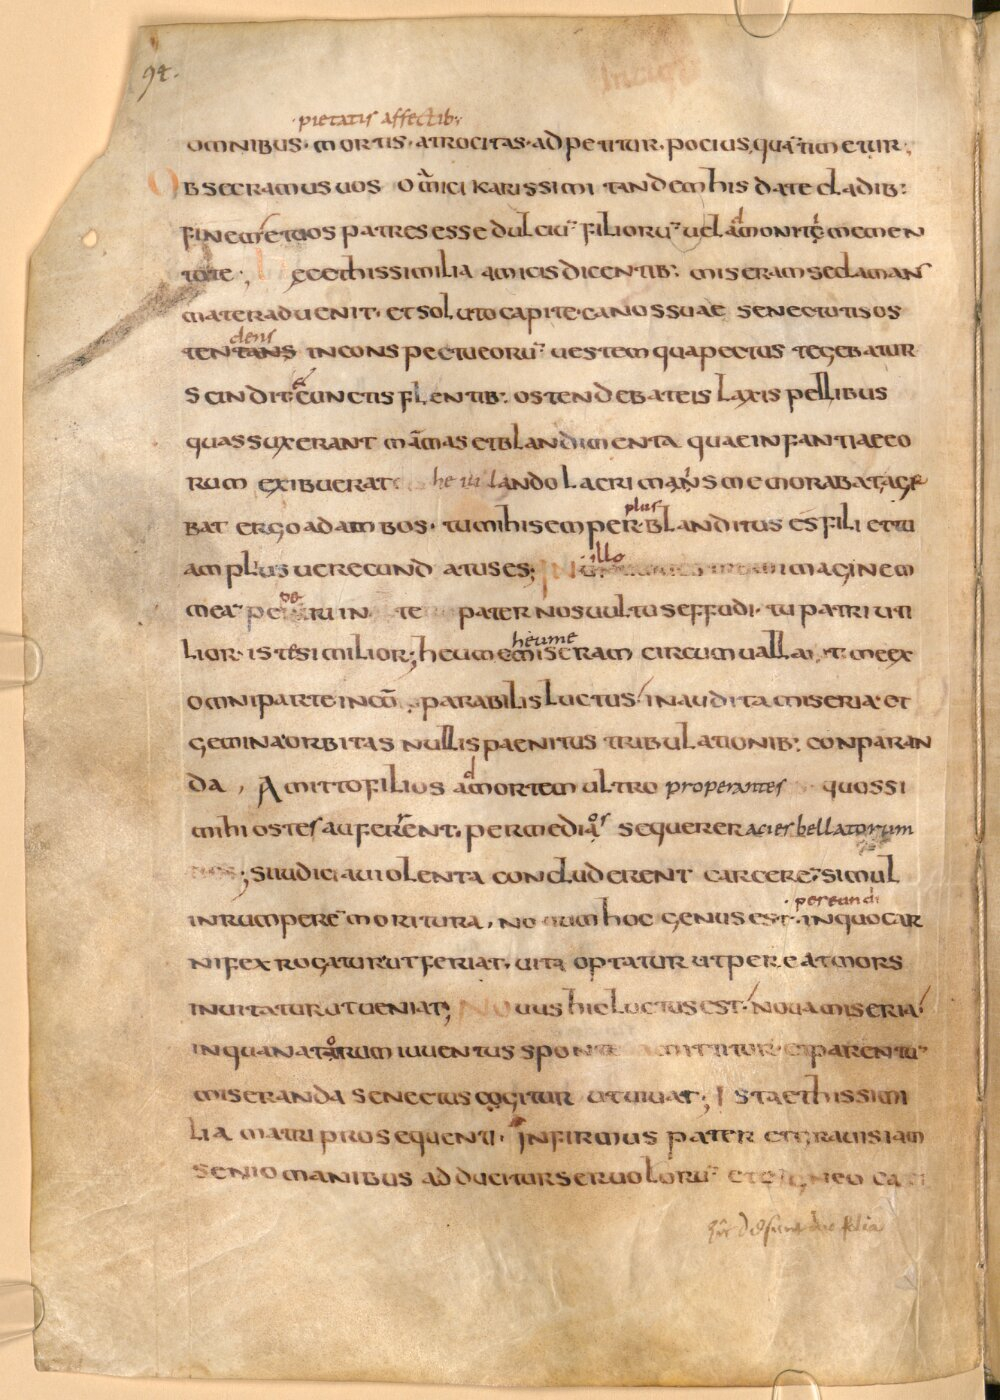 94.
pietatis affectib;
omnibus · mortis · atrocitas · adpetitur · pocius, quā timetur;
Obsecramus uos o am̄ici karissimi tandem his date cladib:
finem et uos patres esse dulciū filiorū uel admoniti memen
tote; Hec et his similia amicis dicentib: misera mse clamans
mater aduenit · et soluto capite canos suae senectutis os
dens
tentans in conspectu eorū uestem qua pectus tegebatur
scindit et cunctis flentib: ostendebat eis laxis pellibus
quas suxerant mām̄as et blandimenta quae infantiae eo
rum exibuerat heiulando lacrimans memorabat age
plus
bat ergo ad ambos · tu mihi semper blanditus es fili et tu
illo
amplius uerecundatus es; In imaginem
pe
meā perinte pater nos uultus effudi · tu patri uti
heume
lior · iste similior; heu me miseram circumuallat me ex
omni parte incō parabilis luctus inaudita miseria et
gemina orbitas nullis paenitus tribulationib: conparan
da, Amitto filios ad mortem ultro properantes quos si
mihi ostes auferrent · per medias sequerer acies bellatorum
si iudicia uiolenta concluderent carcere, simul
pereundi
inrumperē moritura, nouum hoc genus est · in quo car
nifex rogatur ut feriat, uita optatur ut pereat mors
inuitatur ut ueniat; Nouus hic luctus est · noua miseria
in qua natorum iuuentus sponte amittitur et parentū
miseranda senectus cogitur ut uiuat; Ista et his simi
lia matri prosequenti · Infirmus pater et grauis iam
senio manibus adducitur seruolorū et
desunt duo folia